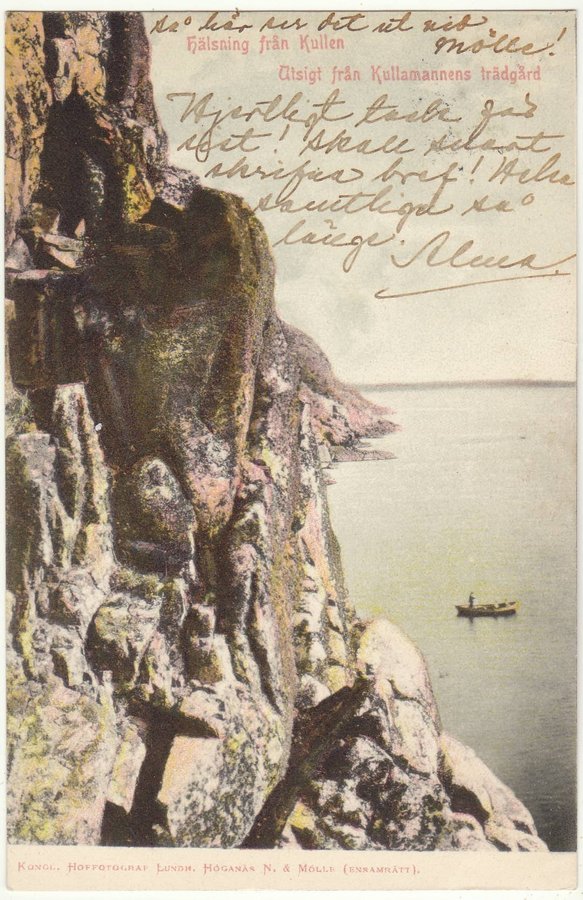 så här ser det ut vid
Mölle!
Hälsning från Kullen
Utsigt från Kullamannens trädgård
Hjertligt tack för
sist! Skall snart
skrifva bref! Helsa
samtliga så
länge.
Alma
Kongl. Hoffotograf Lundh, Höganäs N. & Mölle (ensamrätt).